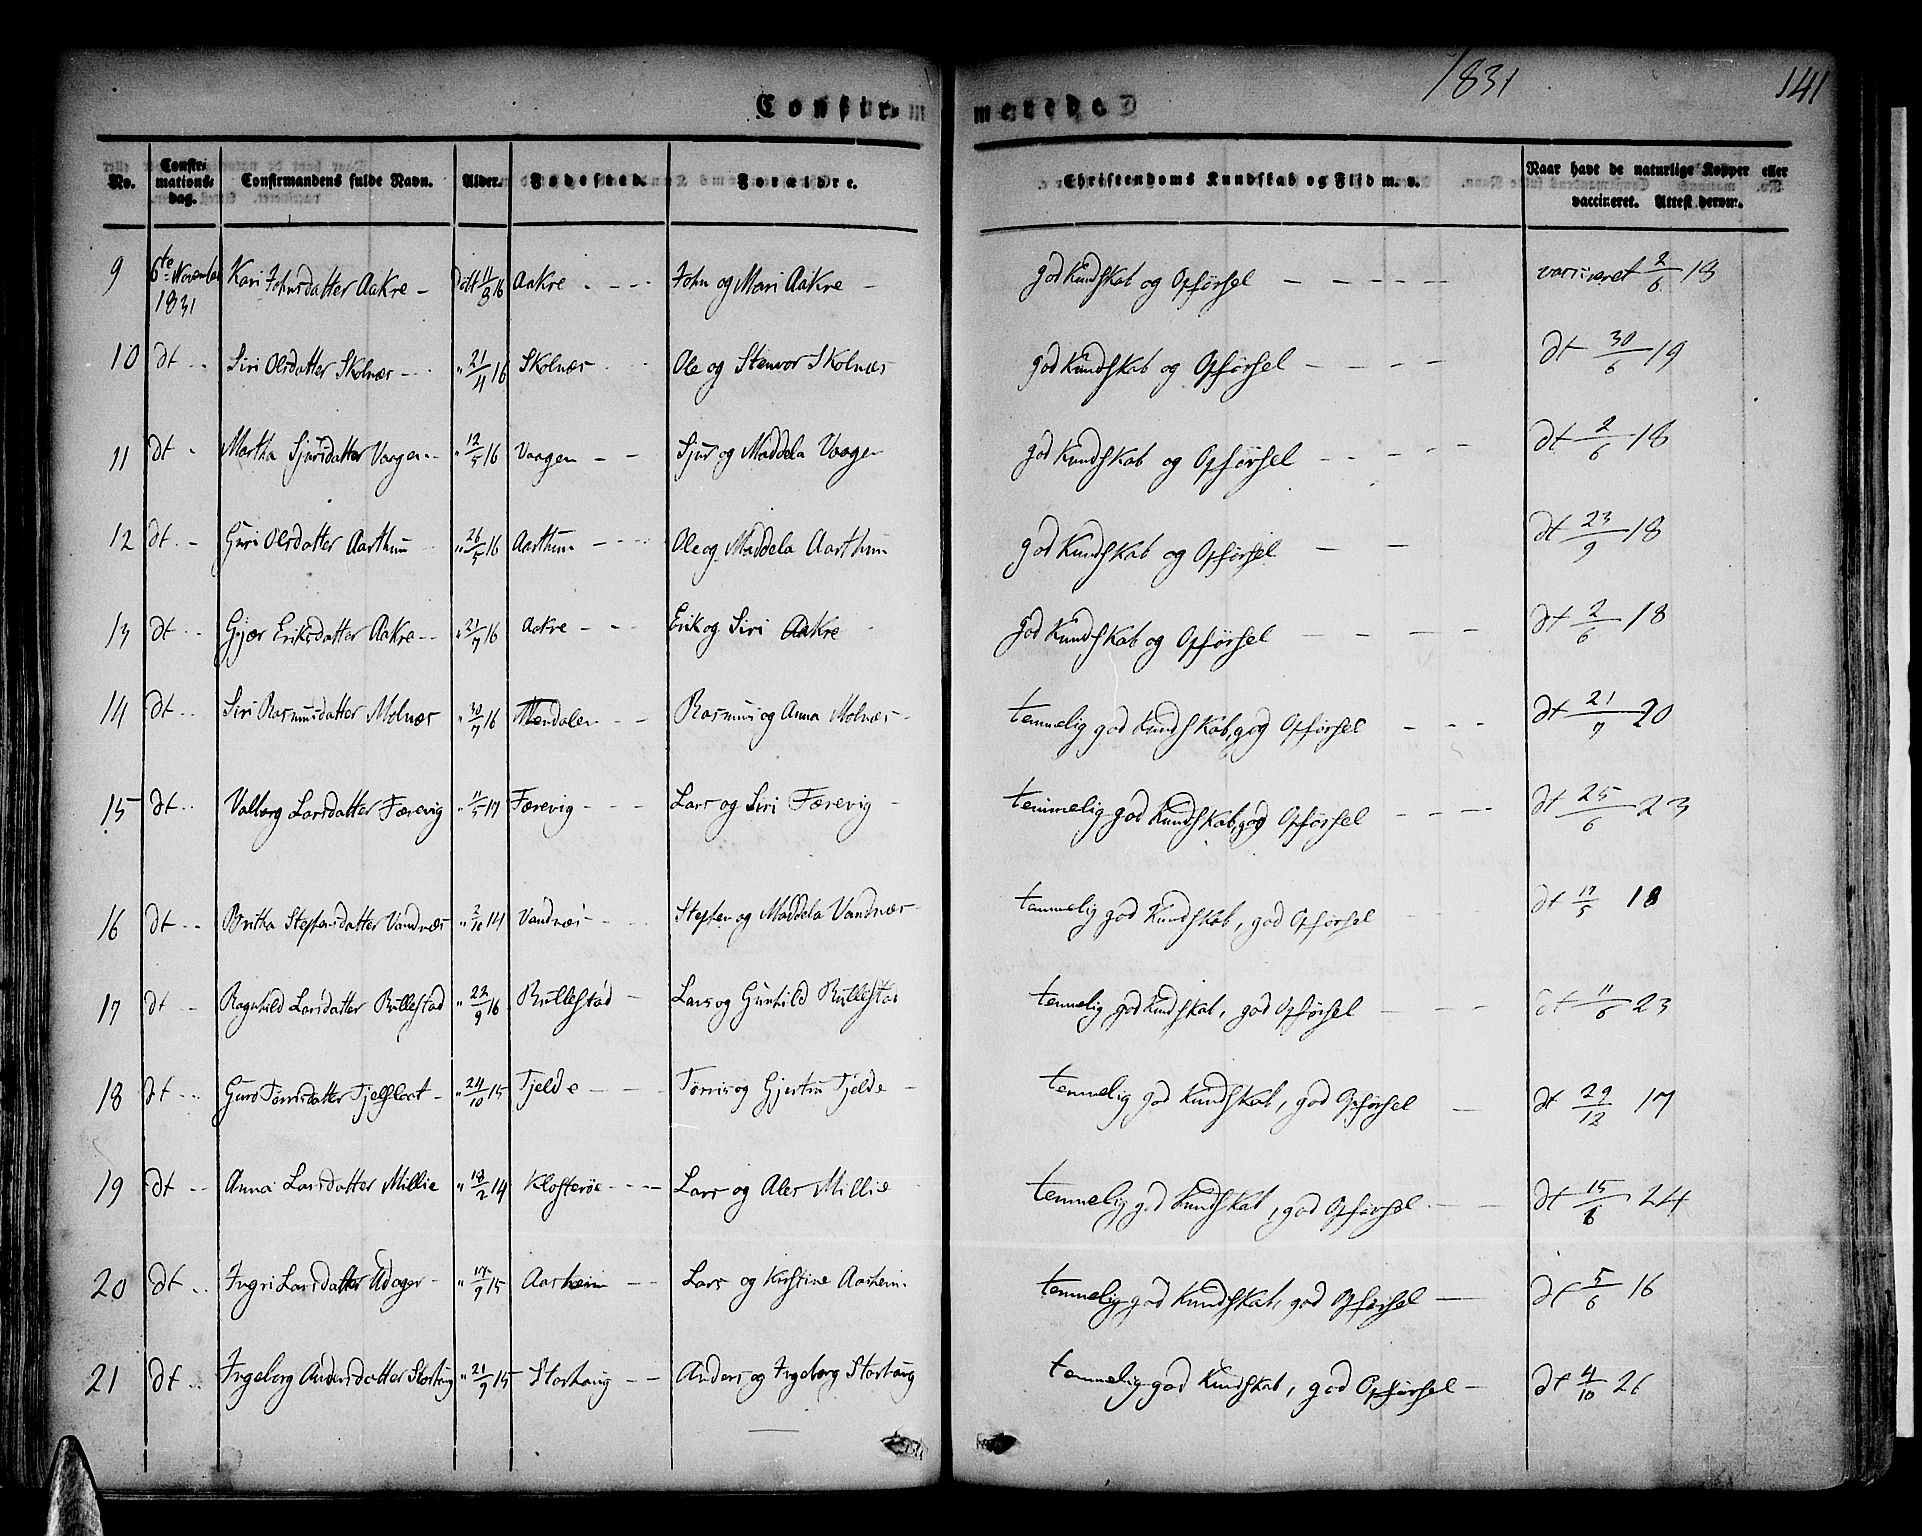 1831 141
Confirmerede
No. Confirmationsdag. Confirmandens fulde Navn. Alder. Fødested. Forældre. Christendoms Kundskab og Flid m. v. Naar havt de naturlige Kopper eller vaccineret. Attest derom.
9 6te November 1831 Kari Johnsdatter Aakre - Døbt 11/8 16 Aakre John og Mari Aakre - god Kundskab og Opførsel vaccineret 2/6 18
10 dt Siri Olsdatter Skolnæs " 21/4 16 Skolnæs Ole og Stenvor Skolnæs god Kundskab og Opførsel dt 30/6 19
11 dt Martha Sjursdatter Vaagen " 12/5 16 Vaagen Sjur og Maddela Vaagen god Kundskab og Opførsel dt 2/6 18
12 dt Guri Olsdatter Aarthun " 26/5 16 Aarthun Ole og Maddela Aarthun god Kundskab og Opførsel dt 23/9 18
13 dt Gjær Eriksdatter Aakre " 21/7 16 Aakre Erik og Siri Aakre god Kundskab og Opførsel dt 2/6 18
14 dt Siri Rasmusdatter Molnæs " 30/7 16 Rasmus og Anna Molnæs temmelig god Kundskab, god Opførsel dt 21/7 20
15 dt Valborg Larsdatter Færevig " 11/5 17 Færevig Lars og Siri Færevig temmelig god Kundskab, god Opførsel dt 25/6 23
16 dt Britha Stephensdatter Vandnæs " 2/10 14 Vandnæs Stephen og Maddela Vandnæs temmelig god Kundskab, god Opførsel dt 17/5 18
17 dt Ragnhild Larsdatter Rullestad " 22/9 16 Rullestad Lars og Gunhild Rullestad temmelig god Kundskab, god Opførsel dt 11/6 23
18 dt Guro Tørrisdatter Tjelflaat " 24/10 15 Tjelde Tørris og Gjertru Tjelde temmelig god Kundskab, god Opførsel dt 29/12 17
19 dt Anna Larsdatter Millie " 18/2 14 Klosterøe Lars og Ales Millie temmelig god Kundskab, god Opførsel dt 15/6 24
20 dt Ingri Larsdatter Udager " 17/9 15 Aarheim Lars og Kirstine Aarheim temmelig god Kundskab, god Opførsel dt 5/6 16
21 dt Ingeborg Andersdatter Storhaug " 21/9 15 Storhaug Anders og Ingeborg Storhaug temmelig god Kundskab, god Opførsel dt 4/10 26